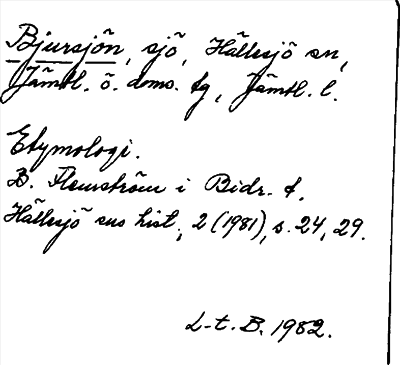 Bjursjön, sjö, Hällesjö sn,
Jämtl. ö. doms. tg, Jämtl. l.
Etymologi.
B. Flemström i Bidr. t.
Hällesjö sns hist., 2 (1981), s. 24, 29.
L-t. B. 1982.